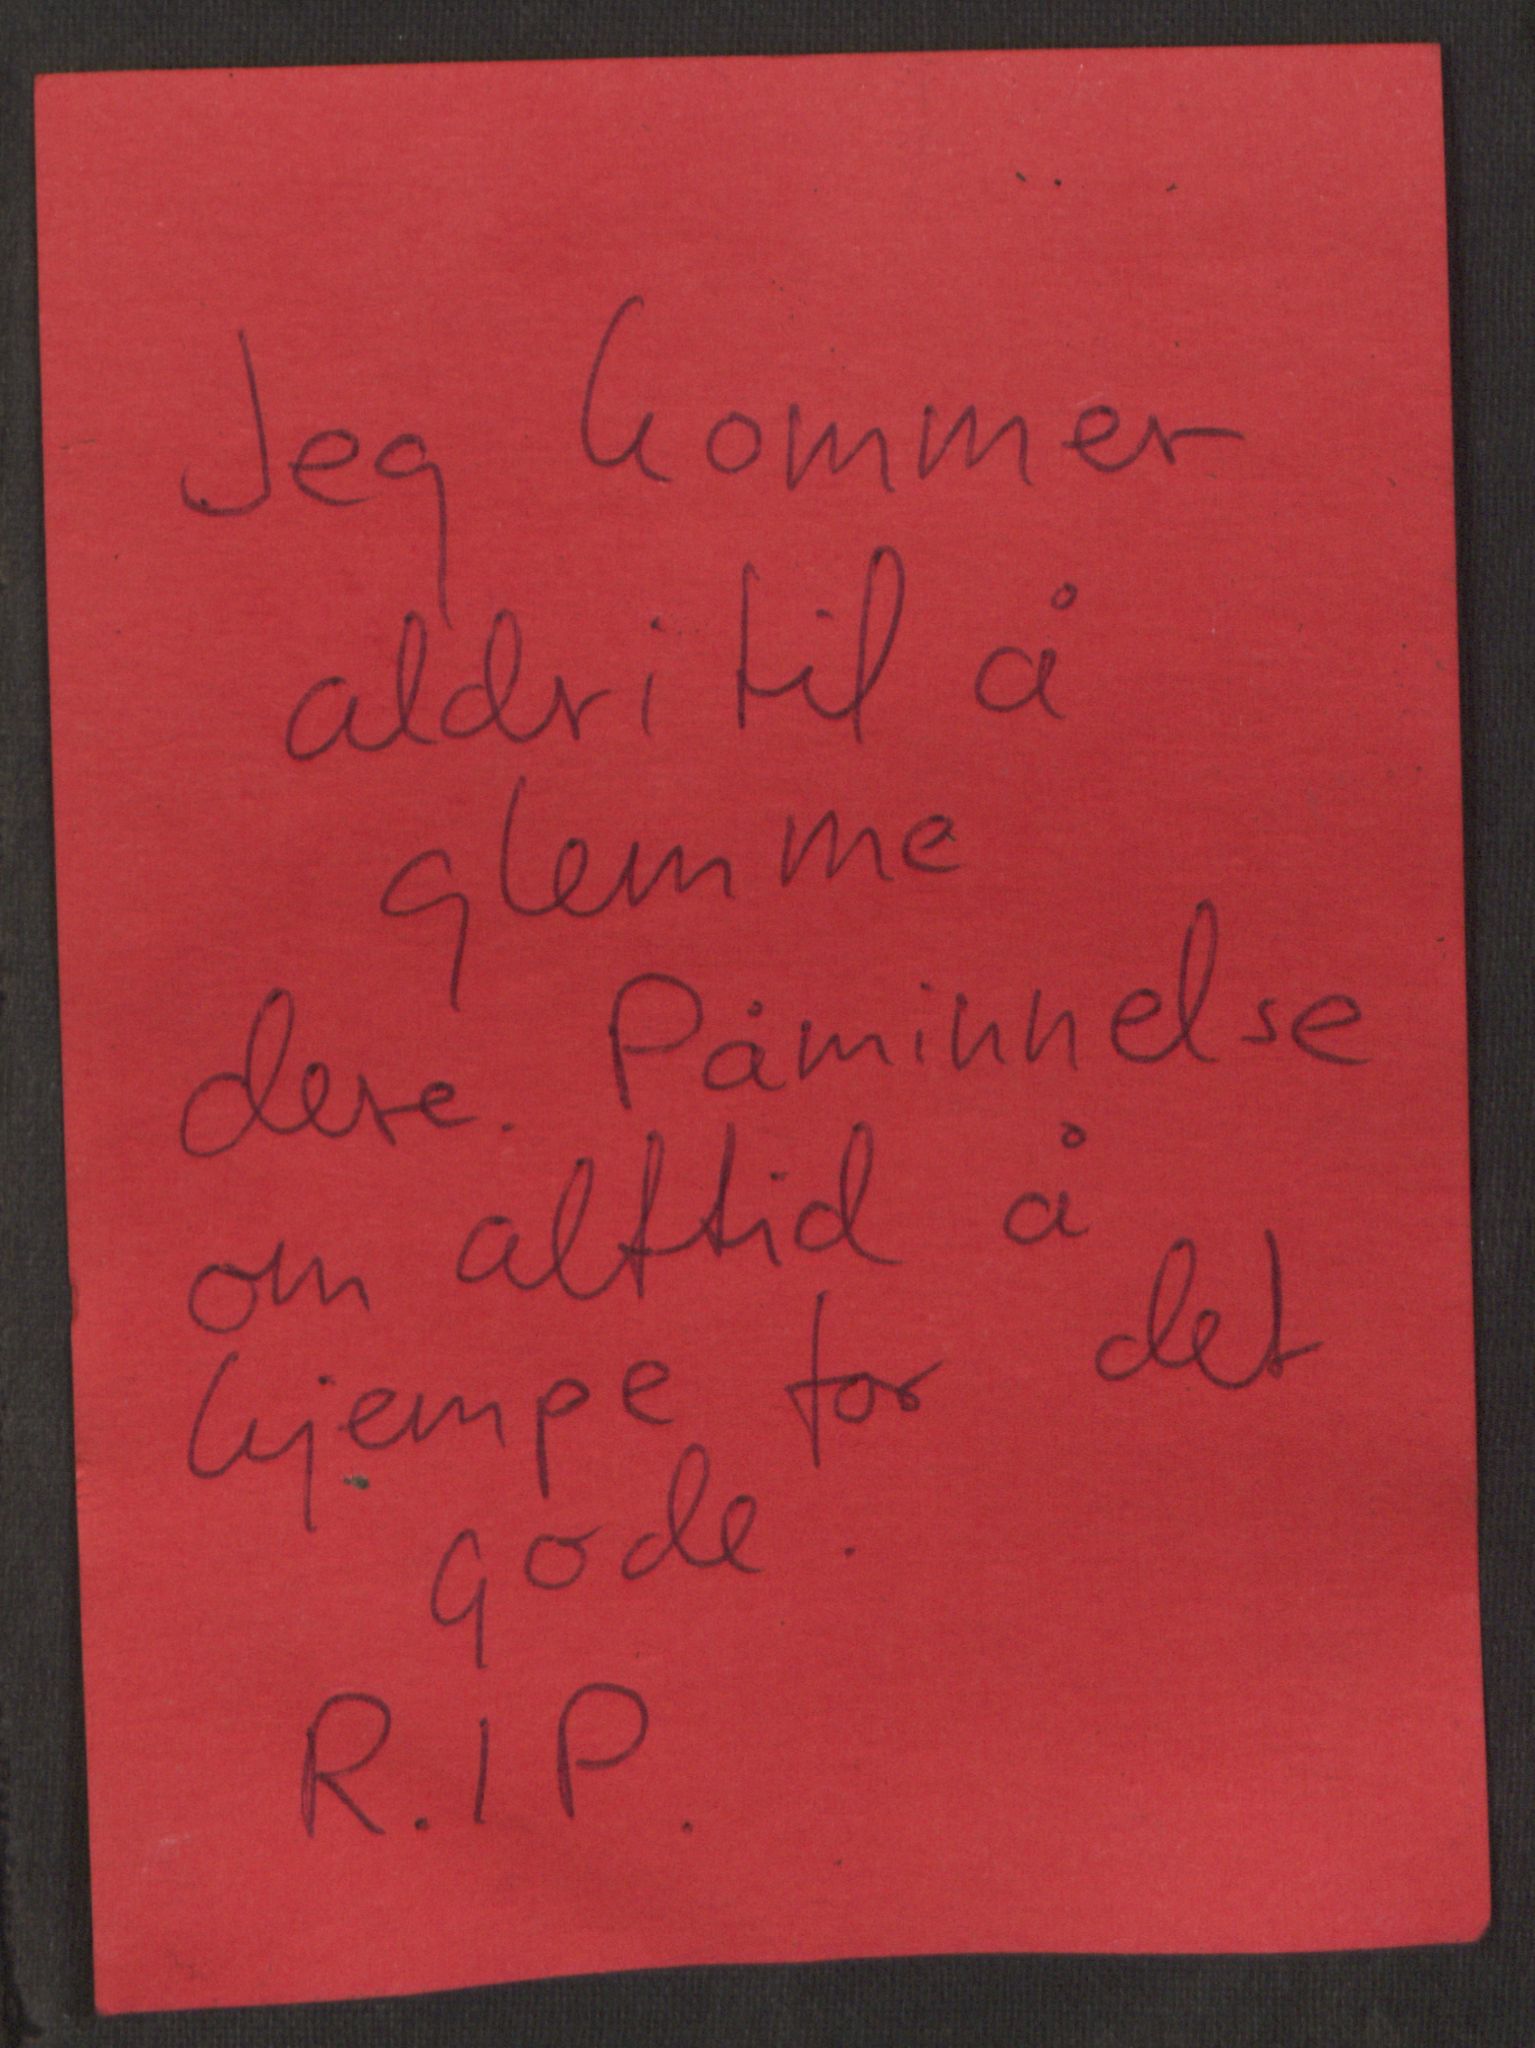 Jeg kommer
aldri til å
glemme
dere. Påminnelse
om alltid å
kjempe for det
gode.
R.I.P.